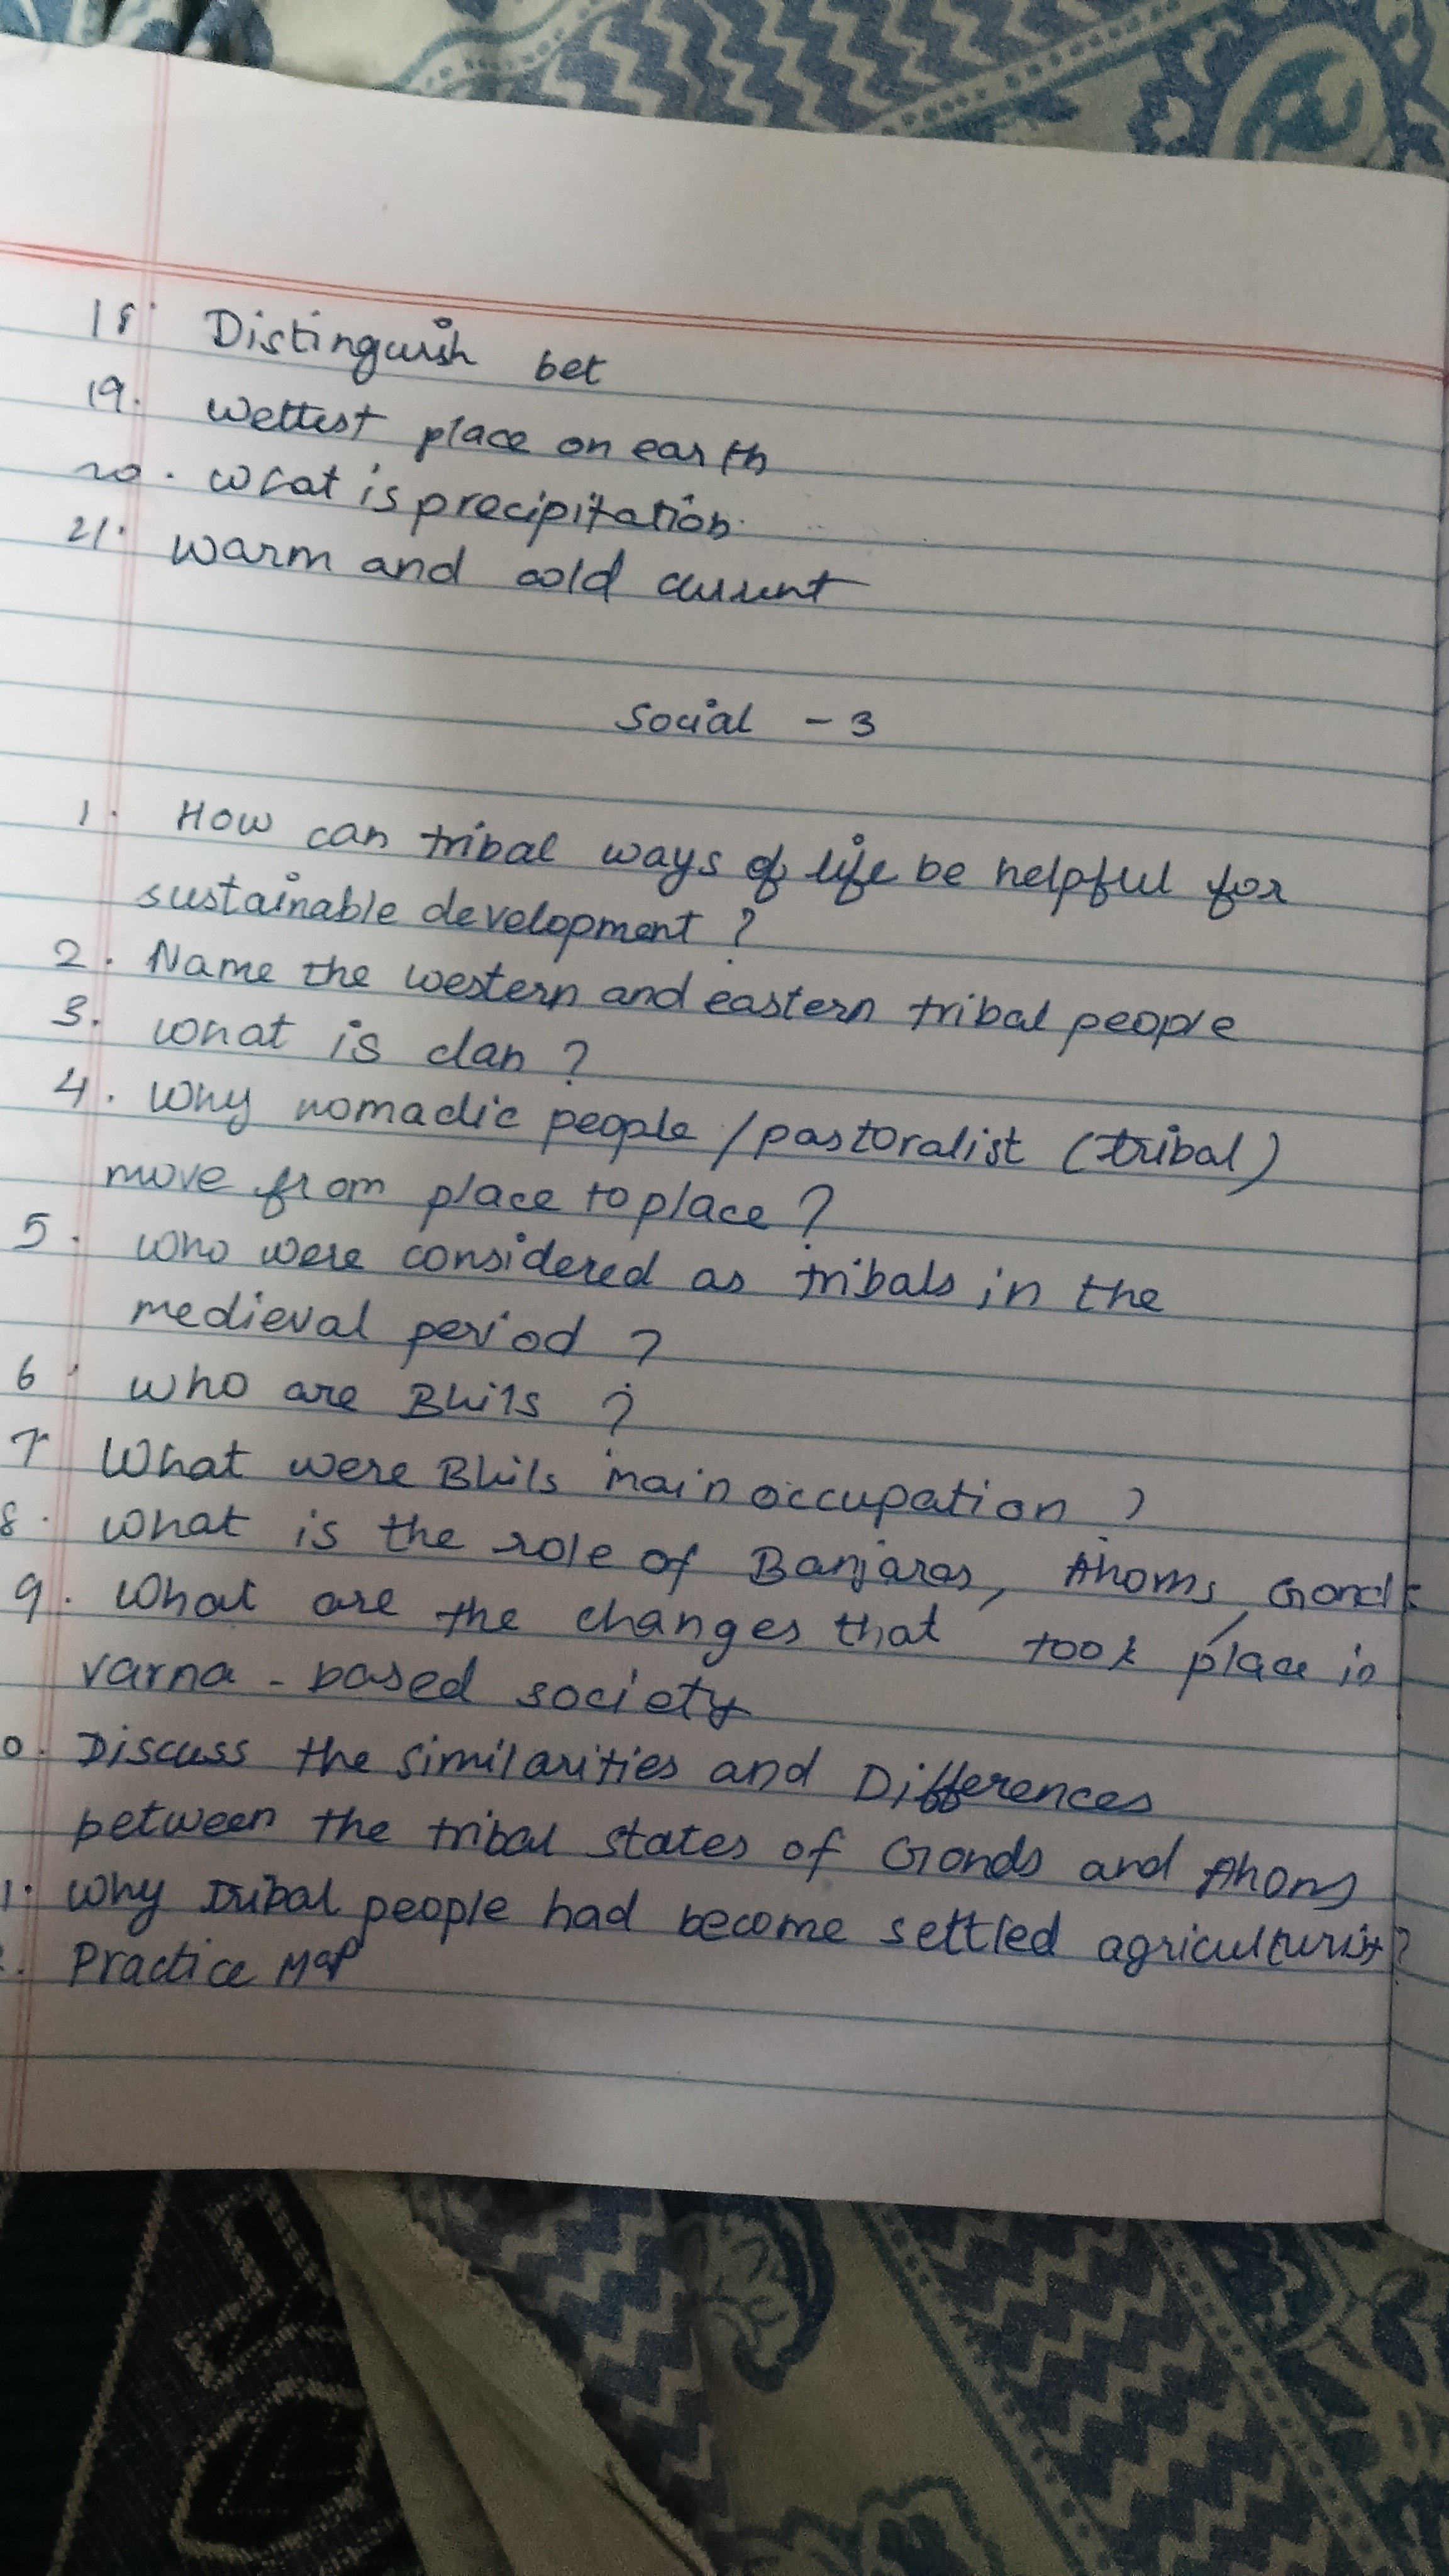 18. Distinguish bet
19. Wettest place on earth
20. What is precipitation.
21. Warm and cold current
Social - 3
1. How can tribal ways of life be helpful for
sustainable development ?
2. Name the western and eastern tribal people
3. What is clan ?
4. Why nomadic people / pastoralist (tribal)
move from place to place ?
5. Who were considered as tribals in the
medieval period ?
6. Who are Bhils ?
7. What were Bhils main occupation ?
8. What is the role of Banjaras, Ahoms, Gonds
9. What are the changes that took place in
varna - based society
0. Discuss the similarities and Differences
between the tribal states of Gonds and Ahoms
1. Why tribal people had become settled agriculturist?
. Practice Map